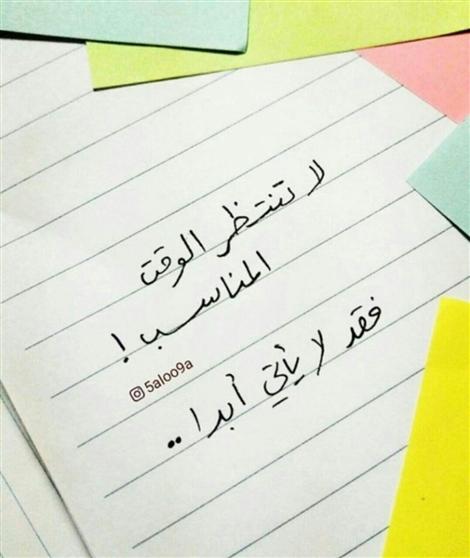 لا تنتظر الوقت
المناسب !
فقد لا يأتي أبدا ..
5aloo9a